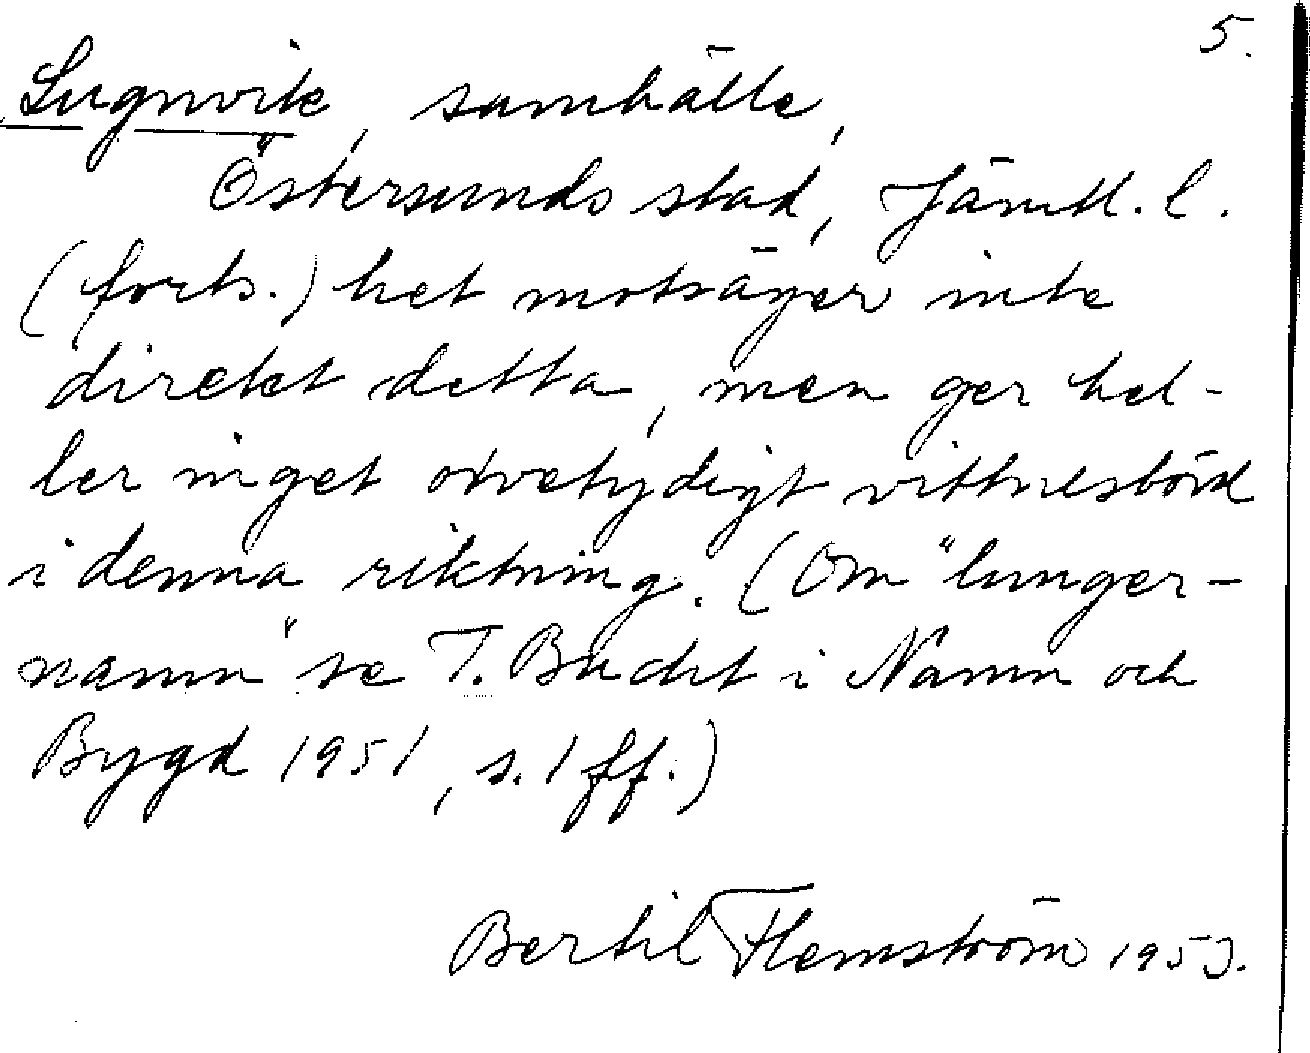 5.
Lugnvik, samhälle,
Östersunds stad, Jämtl. l.
(forts.) het motsäger inte
direkt detta, men ger hel-
ler inget otvetydigt vittnesbörd
i denna riktning. (Om "lunger-
namn" se T. Bucht i Namn och
Bygd 1951, s. 1 ff.)
Bertil Flemström 1953.